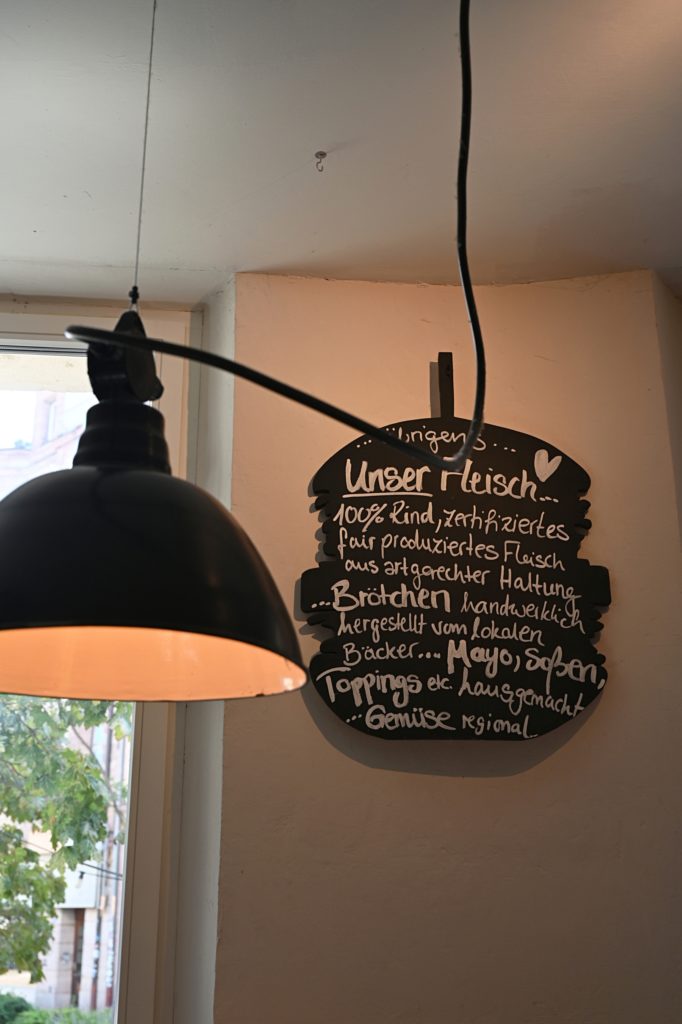 ... übrigens ...
Unser Fleisch...
100% Rind, zertifiziertes
fair produziertes Fleisch
aus artgerechter Haltung
...Brötchen handwerklich
hergestellt vom lokalen
Bäcker... Mayo, Soßen,
Toppings etc. hausgemacht
...Gemüse regional